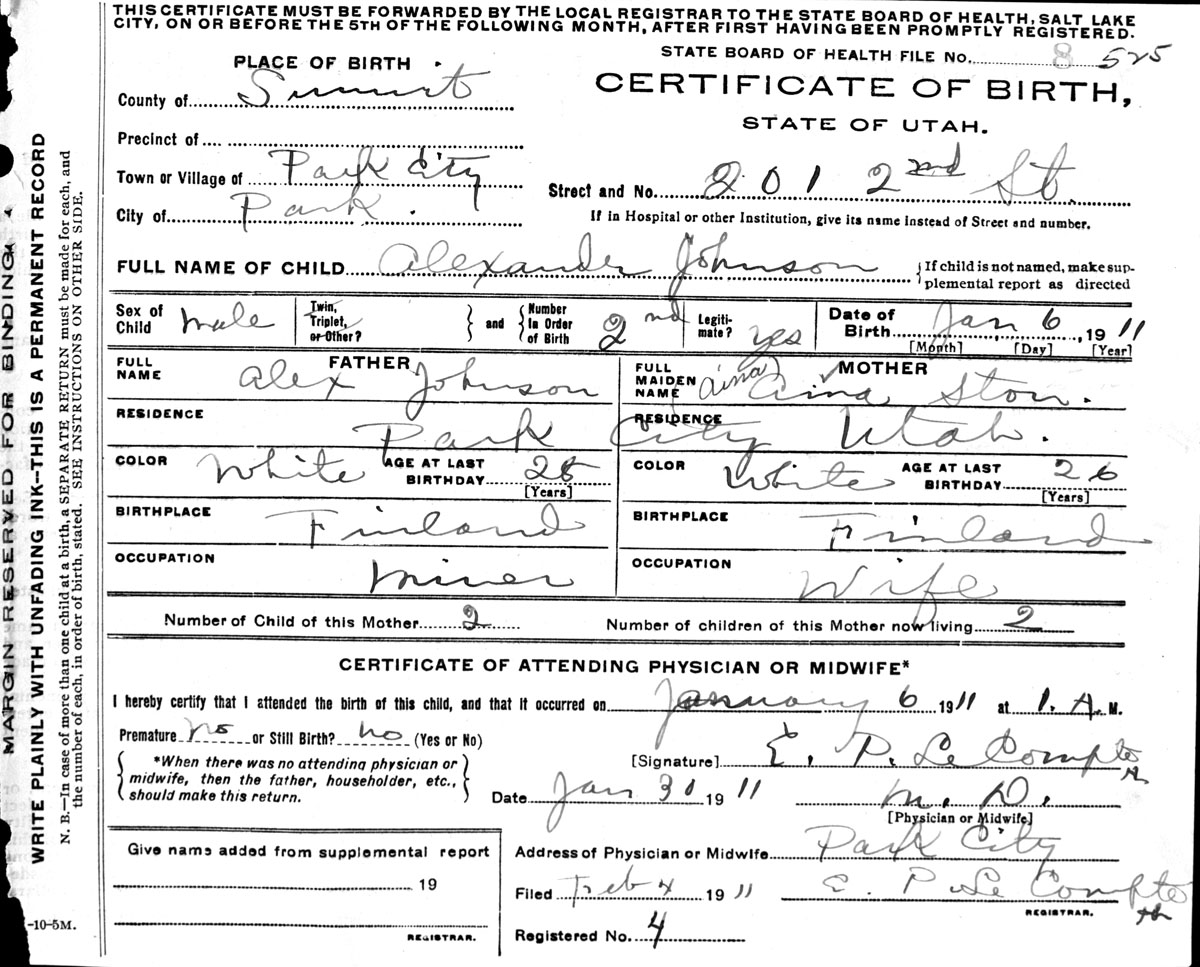 THIS CERTIFICATE MUST BE FORWARDED BY THE LOCAL REGISTRAR TO THE STATE BOARD OF HEALTH, SALT LAKE
CITY, ON OR BEFORE THE 5TH OF THE FOLLOWING MONTH, AFTER FIRST HAVING BEEN PROMPTLY REGISTERED.
STATE BOARD OF HEALTH FILE No. 8 525
PLACE OF BIRTH
CERTIFICATE OF BIRTH,
County of Summit
STATE OF UTAH.
Precinct of
Town or Village of Park City
Street and No. 201 2nd St.
City of Park.
If in Hospital or other Institution, give its name instead of Street and number.
FULL NAME OF CHILD Alexander Johnson
{If child is not named, make sup-
plemental report as directed
Sex of Child male
Twin, Triplet, or Other?
and
Number In Order of Birth 2nd
Legiti-mate? yes
Date of Birth Jan 6, 1911
[Month] [Day] [Year]
FATHER
FULL NAME Alex Johnson
MOTHER
FULL MAIDEN NAME (Aina) Aina Ston.
RESIDENCE RESIDENCE
Park City Utah.
COLOR White AGE AT LAST BIRTHDAY 25 [Years]
COLOR White AGE AT LAST BIRTHDAY 26 [Years]
BIRTHPLACE Finland
BIRTHPLACE Finland
OCCUPATION Miner
OCCUPATION Wife
Number of Child of this Mother 2
Number of children of this Mother now living 2
CERTIFICATE OF ATTENDING PHYSICIAN OR MIDWIFE*
I hereby certify that I attended the birth of this child, and that it occurred on January 6 1911 at 1. A. M.
Premature no or Still Birth? no (Yes or No)
[Signature] E. P. Le Compte
*When there was no attending physician or
midwife, then the father, householder, etc.,
should make this return.
Date Jan 31 1911
M. D.
[Physician or Midwife]
Give name added from supplemental report
Address of Physician or Midwife Park City
19
Filed Feb 4 1911 E. P. Le Compte
REGISTRAR.
REGISTRAR.
Registered No. 4
-10-5M.
MARGIN RESERVED FOR BINDING
WRITE PLAINLY WITH UNFADING INK—THIS IS A PERMANENT RECORD
N. B.—In case of more than one child at a birth, a SEPARATE RETURN must be made for each, and
the number of each, in order of birth, stated. SEE INSTRUCTIONS ON OTHER SIDE.